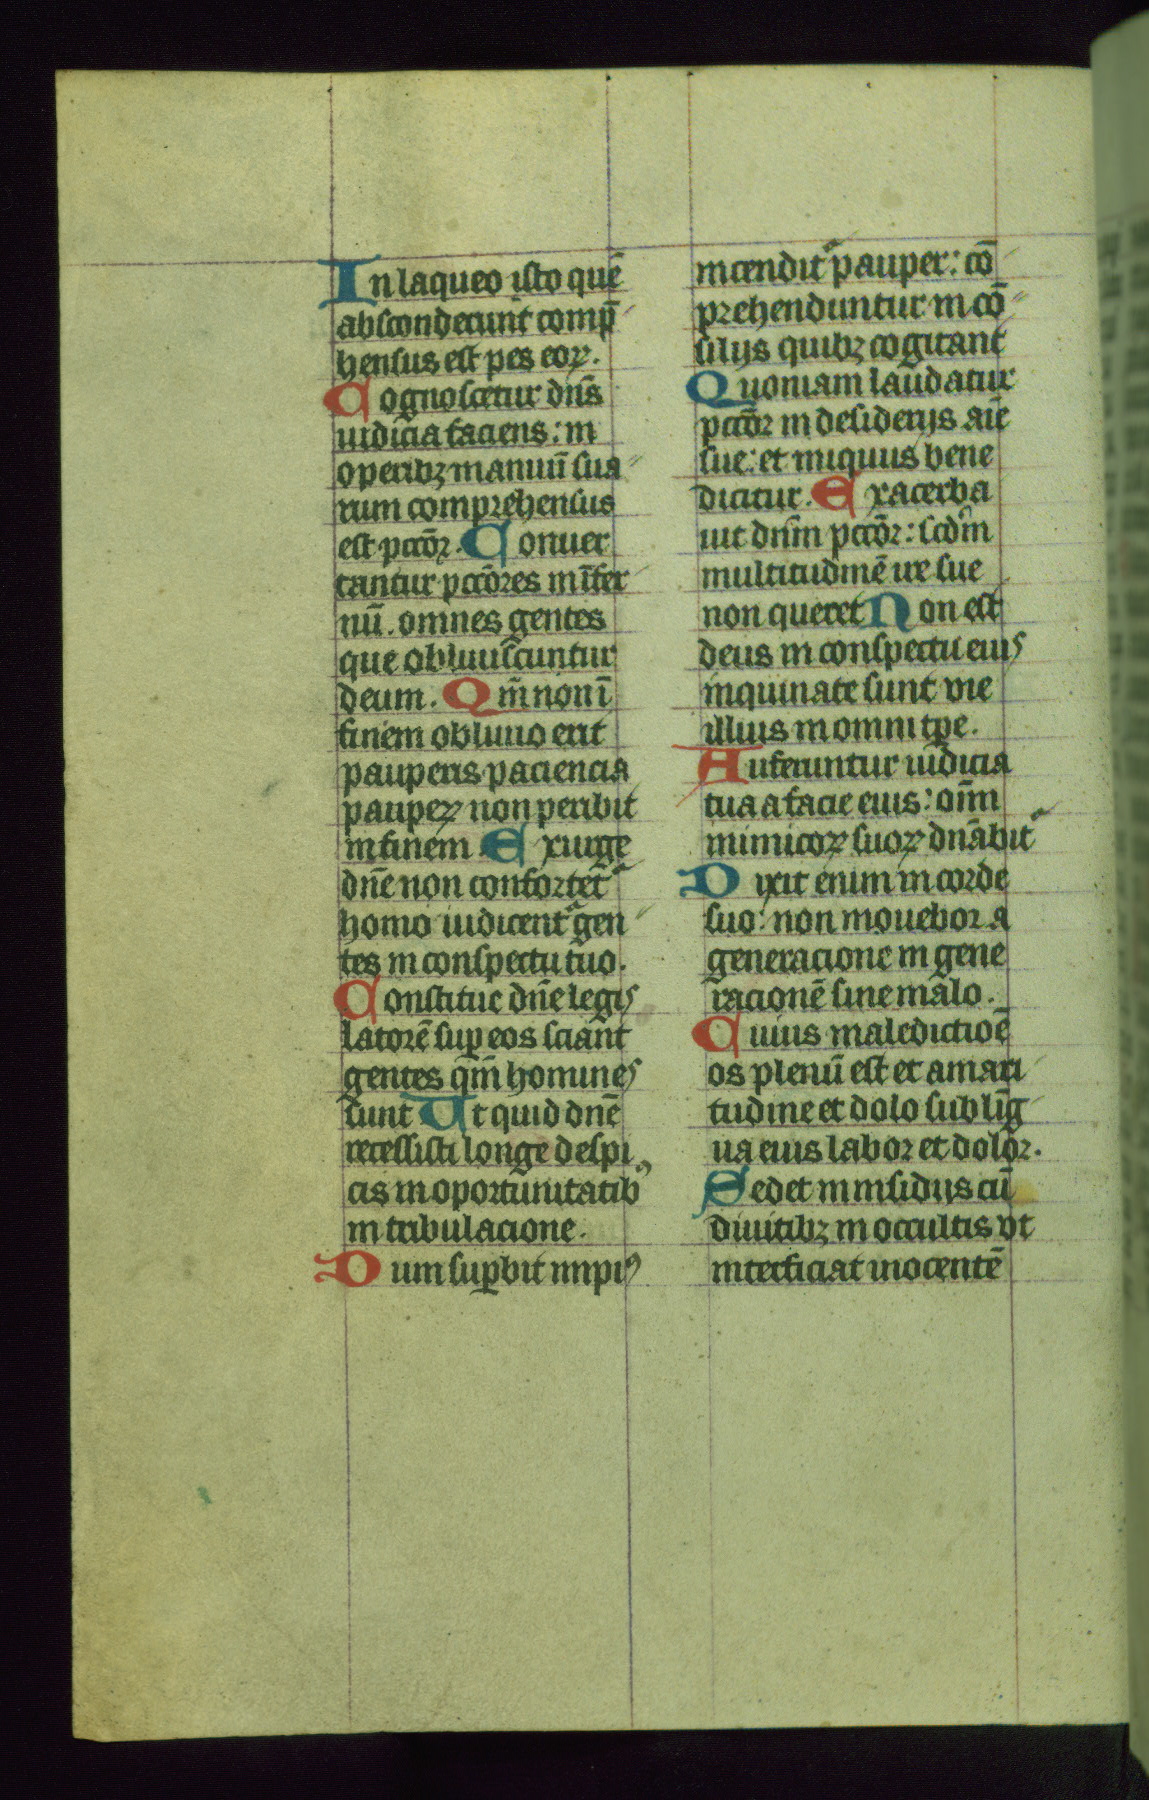 In laqueo isto quē
absconderunt comp̄
hensus est pes eoꝝ.
Cognoscetur dn̄s
iudicia faciens: in
operibꝫ manuū sua
rum comprehensus
est pcc̄or. Conuer
tantur pcc̄ores in īfer
nū. omnes gentes
que obliuiscuntur
deum. Qm̄ non ī
finem obliuio erit
pauperis paciencia
paupeꝝ non peribit
in finem Exurge
dn̄e non confortet᷑
homo iudicent᷑ gen
tes in conspectu tuo.
Constitue dn̄e legis
latorē suꝑ eos sciant
gentes qm̄ homines
sunt Ut quid dn̄e
recessisti longe despi
cis in oportunitatibꝰ
in tribulacione.
Dum suꝑbit impiꝰ
incendit᷑ pauper: cō
prehenduntur in cō
silijs quibꝫ cogitant
Quoniam laudatur
pcc̄or in desiderijs aīe
sue: et iniquus bene
dicitur. Exacerba
uit dn̄m pcc̄or: scd̄m
multitudinē ire sue
non queret Non est
deus in conspectu eius
inquinate sunt vie
illius in omni tp̄e.
Auferuntur iudicia
tua a facie eius: oīm
inimicoꝝ suoꝝ dn̄abit᷑
Dixit enim in corde
suo: non mouebor a
generacione in gene
racionē sine malo.
Cuius maledictioē
os plenū est et amari
tudine et dolo sub līg
ua eius labor et dolor.
Sedet in insidijs cū
diuitibꝫ in occultis vt
interficiat inocentē